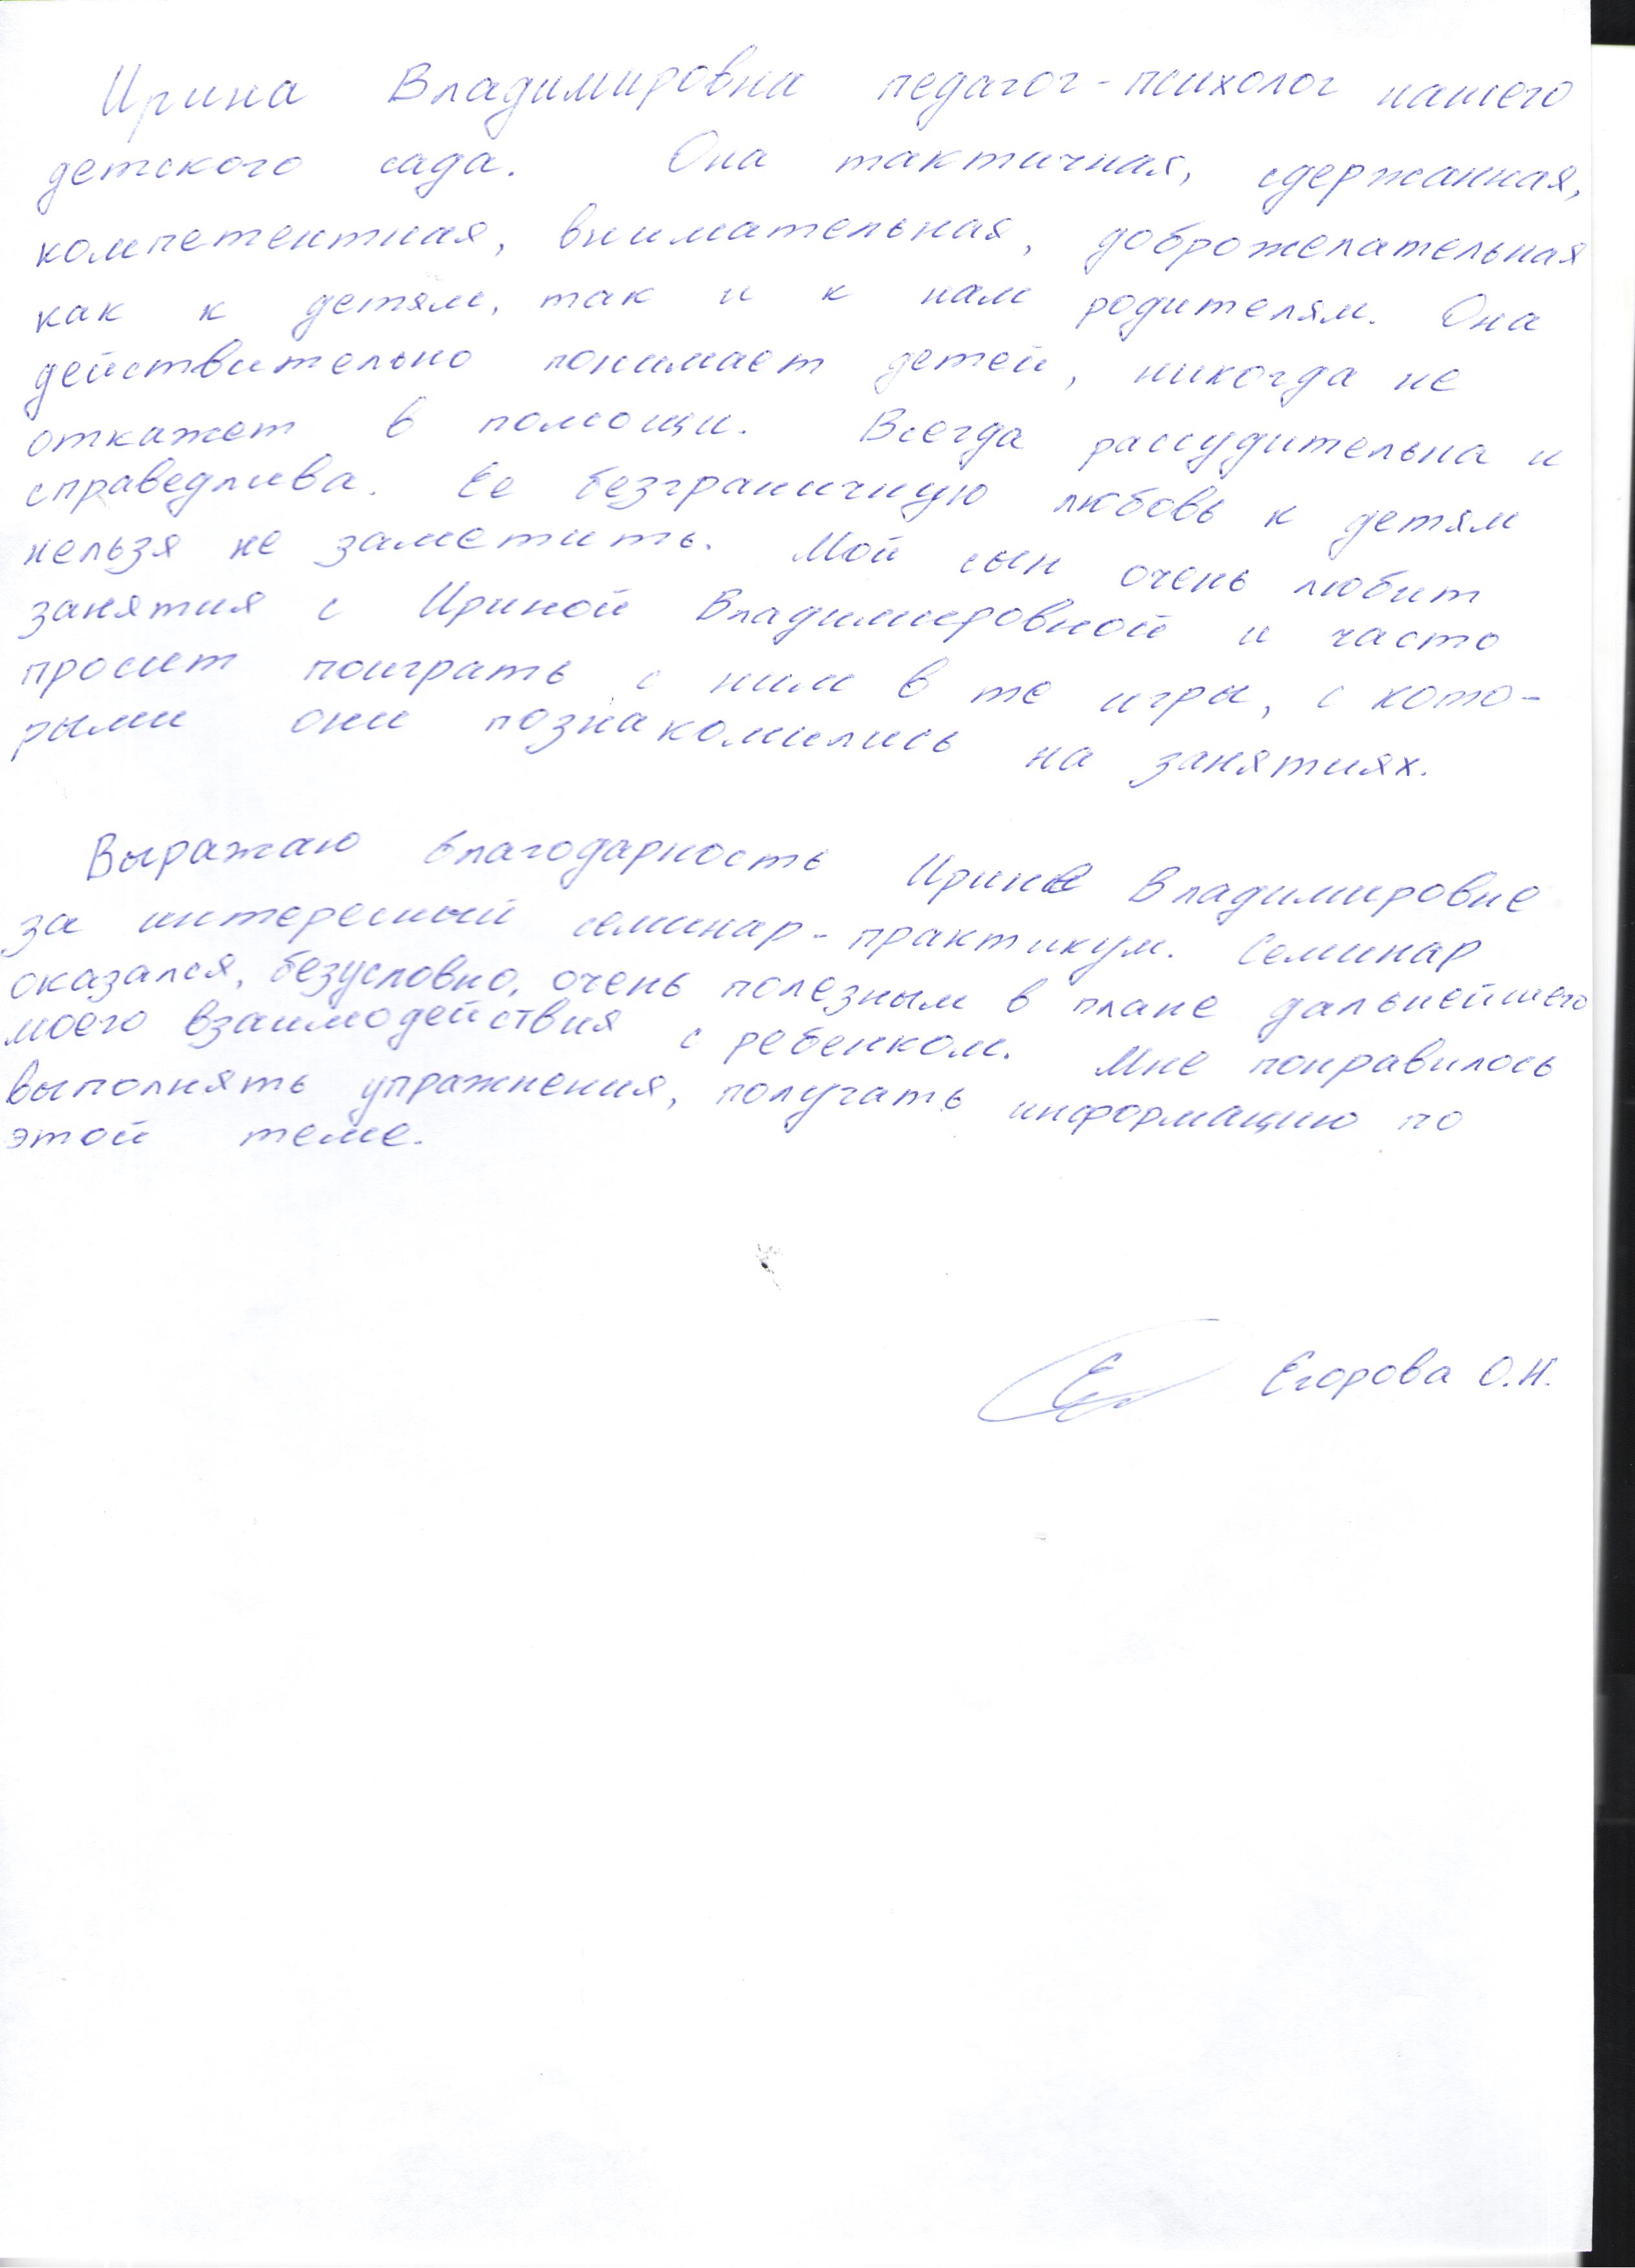 Ирина Владимировна педагог-психолог нашего
детского сада. Она тактичная, сдержанная,
компетентная, внимательная, доброжелательная
как к детям, так и к нам родителям. Она
действительно понимает детей, никогда не
откажет в помощи. Всегда рассудительна и
справедлива. Ее безграничную любовь к детям
нельзя не заметить. Мой сын очень любит
занятия с Ириной Владимировной и часто
просит поиграть с ним в те игры, с кото-
рыми они познакомились на занятиях.
Выражаю благодарность Ирине Владимировне
за интересный семинар-практикум. Семинар
оказался, безусловно, очень полезным в плане дальнейшего
моего взаимодействия с ребенком. Мне понравилось
выполнять упражнения, получать информацию по
этой теме.
Егорова О.Н.